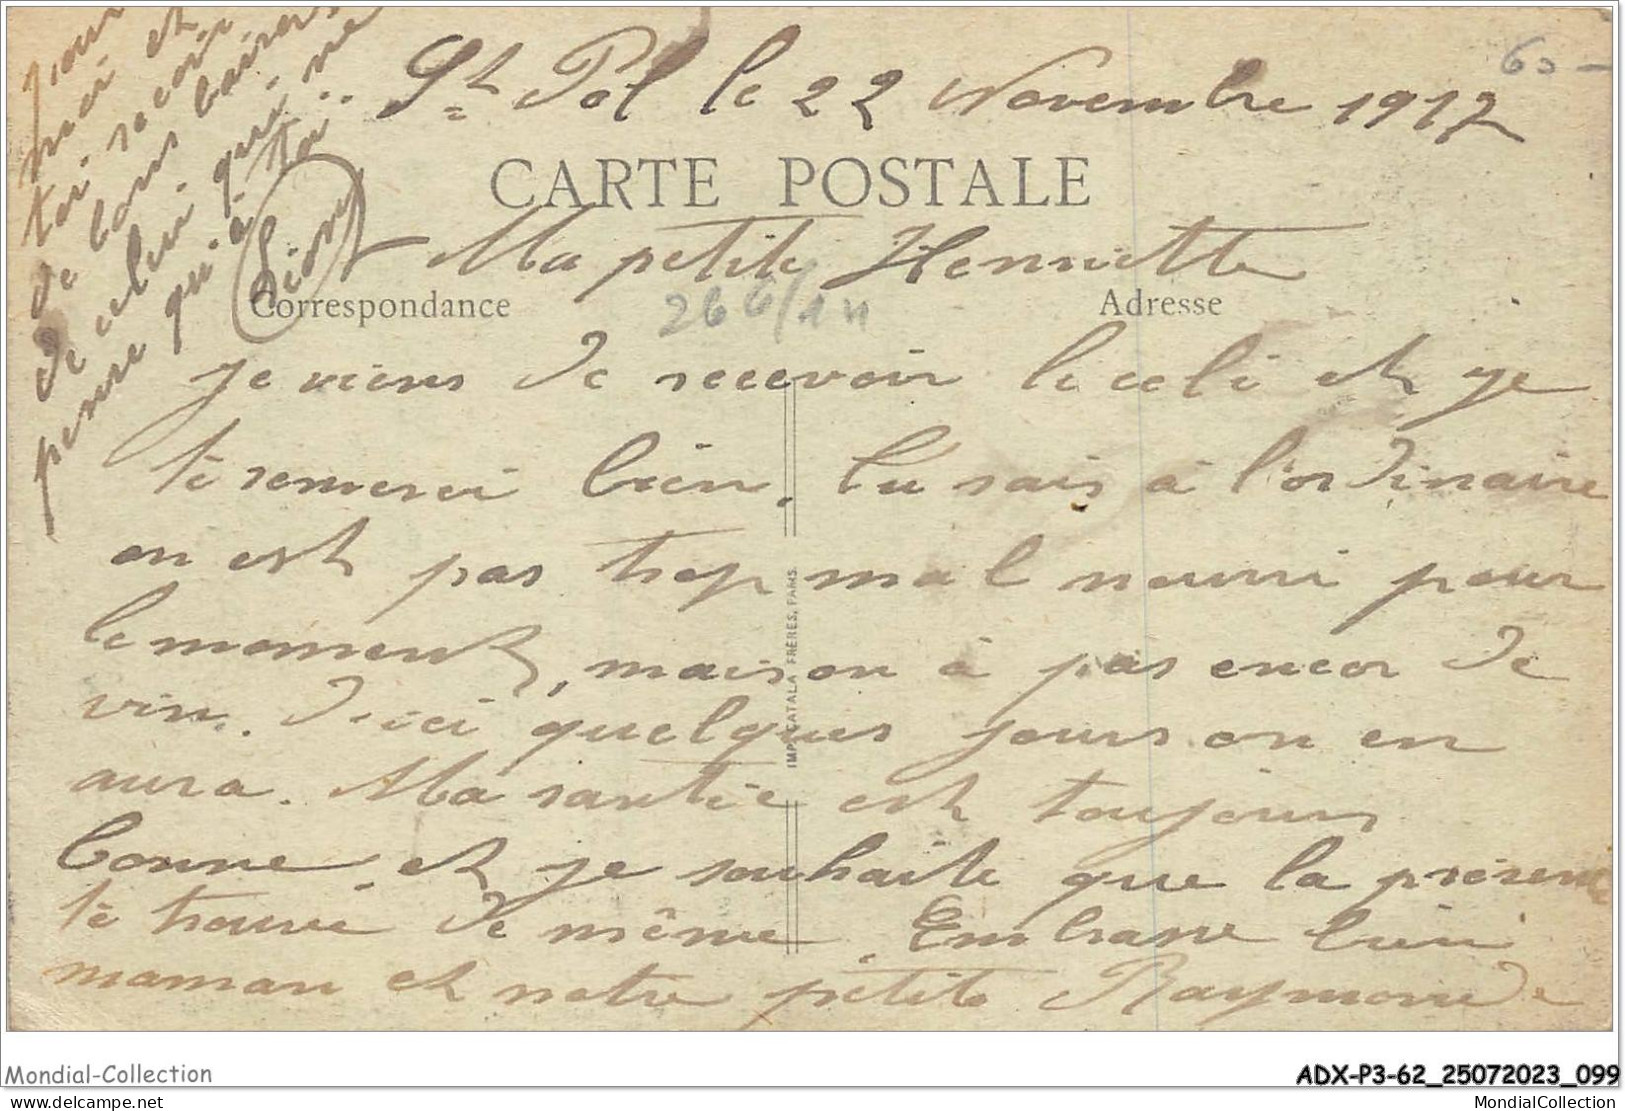 St Pol le 22 Novembre 1917
60 -
CARTE POSTALE
Ma petite Henriette
Correspondance
266/14
Adresse
je viens de recevoir le coli et je
te remerci bien. Tu sais à l'ordinaire
on est pas trop mal nourri pour
le moment, mais on à pas encor de
vin. D'ici quelques jours on en
aura. Ma santée est toujours
bonne et je souhaite que la présente
te trouve de même. Embrasse bien
maman et notre petite Raymonde
pour
moi et
toi recois
de bons baisers
de celui qui ne
pense qu'à toi..
Léon
IMP. CATALA FRÈRES, PARIS.
Mondial-Collection
ADX-P3-62_25072023_099
www.delcampe.net
MondialCollection